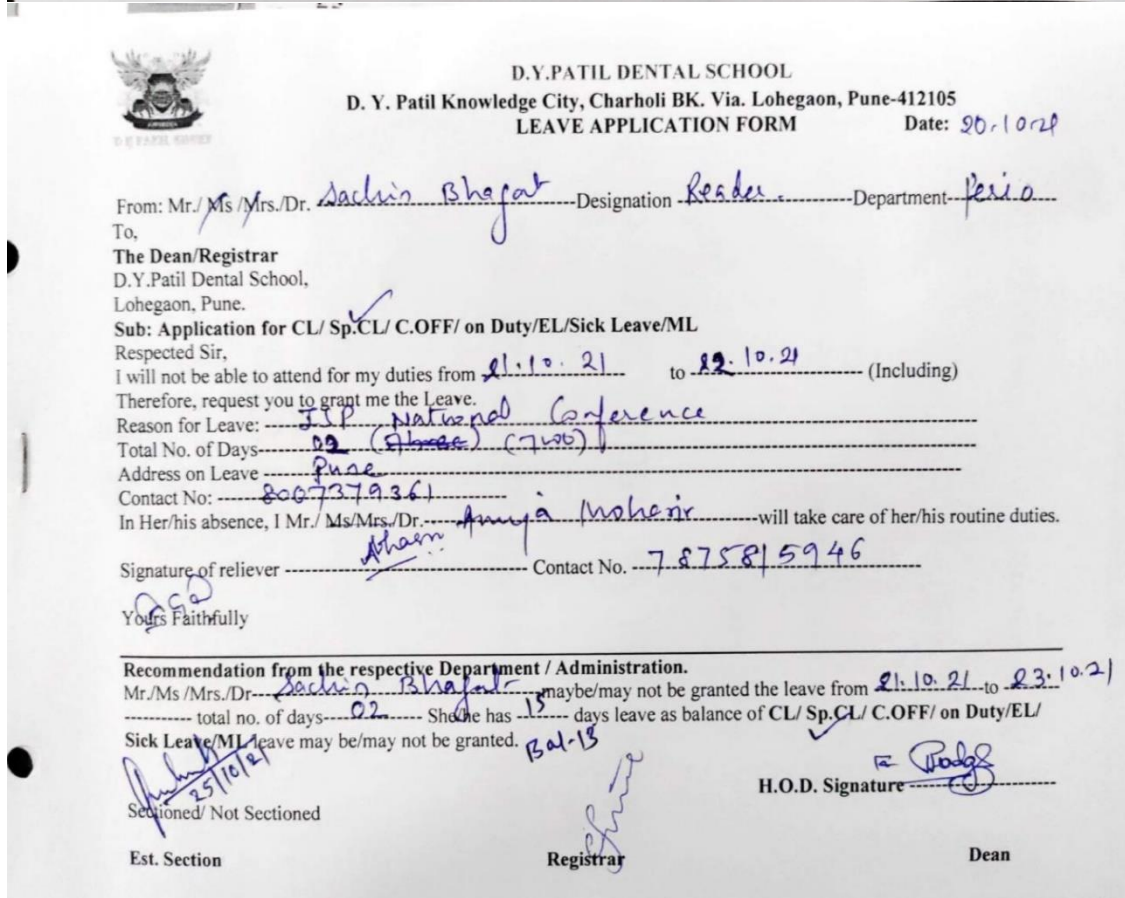 D.Y.PATIL DENTAL SCHOOL
D. Y. Patil Knowledge City, Charholi BK. Via. Lohegaon, Pune-412105
LEAVE APPLICATION FORM Date: 20.10.21
From: Mr./ Ms /Mrs./Dr. Sachin Bhagat Designation Reader. Department Perio
To,
The Dean/Registrar
D.Y.Patil Dental School,
Lohegaon, Pune.
Sub: Application for CL/ Sp.CL/ C.OFF/ on Duty/EL/Sick Leave/ML
Respected Sir,
I will not be able to attend for my duties from 21.10.21 to 22.10.21 (Including)
Therefore, request you to grant me the Leave.
Reason for Leave: National Conference
Total No. of Days 02 (two)
Address on Leave Pune
Contact No: 8007379361
In Her/his absence, I Mr./ Ms/Mrs./Dr. Anuja Moharir will take care of her/his routine duties.
Signature of reliever Contact No. 7875815946
Yours Faithfully
Recommendation from the respective Department / Administration.
Mr./Ms /Mrs./Dr Sachin Bhagat maybe/may not be granted the leave from 21.10.21 to 23.10.21
total no. of days 02 She/he has 15 days leave as balance of CL/ Sp.CL/ C.OFF/ on Duty/EL/
Sick Leave/ML leave may be/may not be granted. Bal-13
25/10/21
H.O.D. Signature
Sectioned/ Not Sectioned
Est. Section Registrar Dean